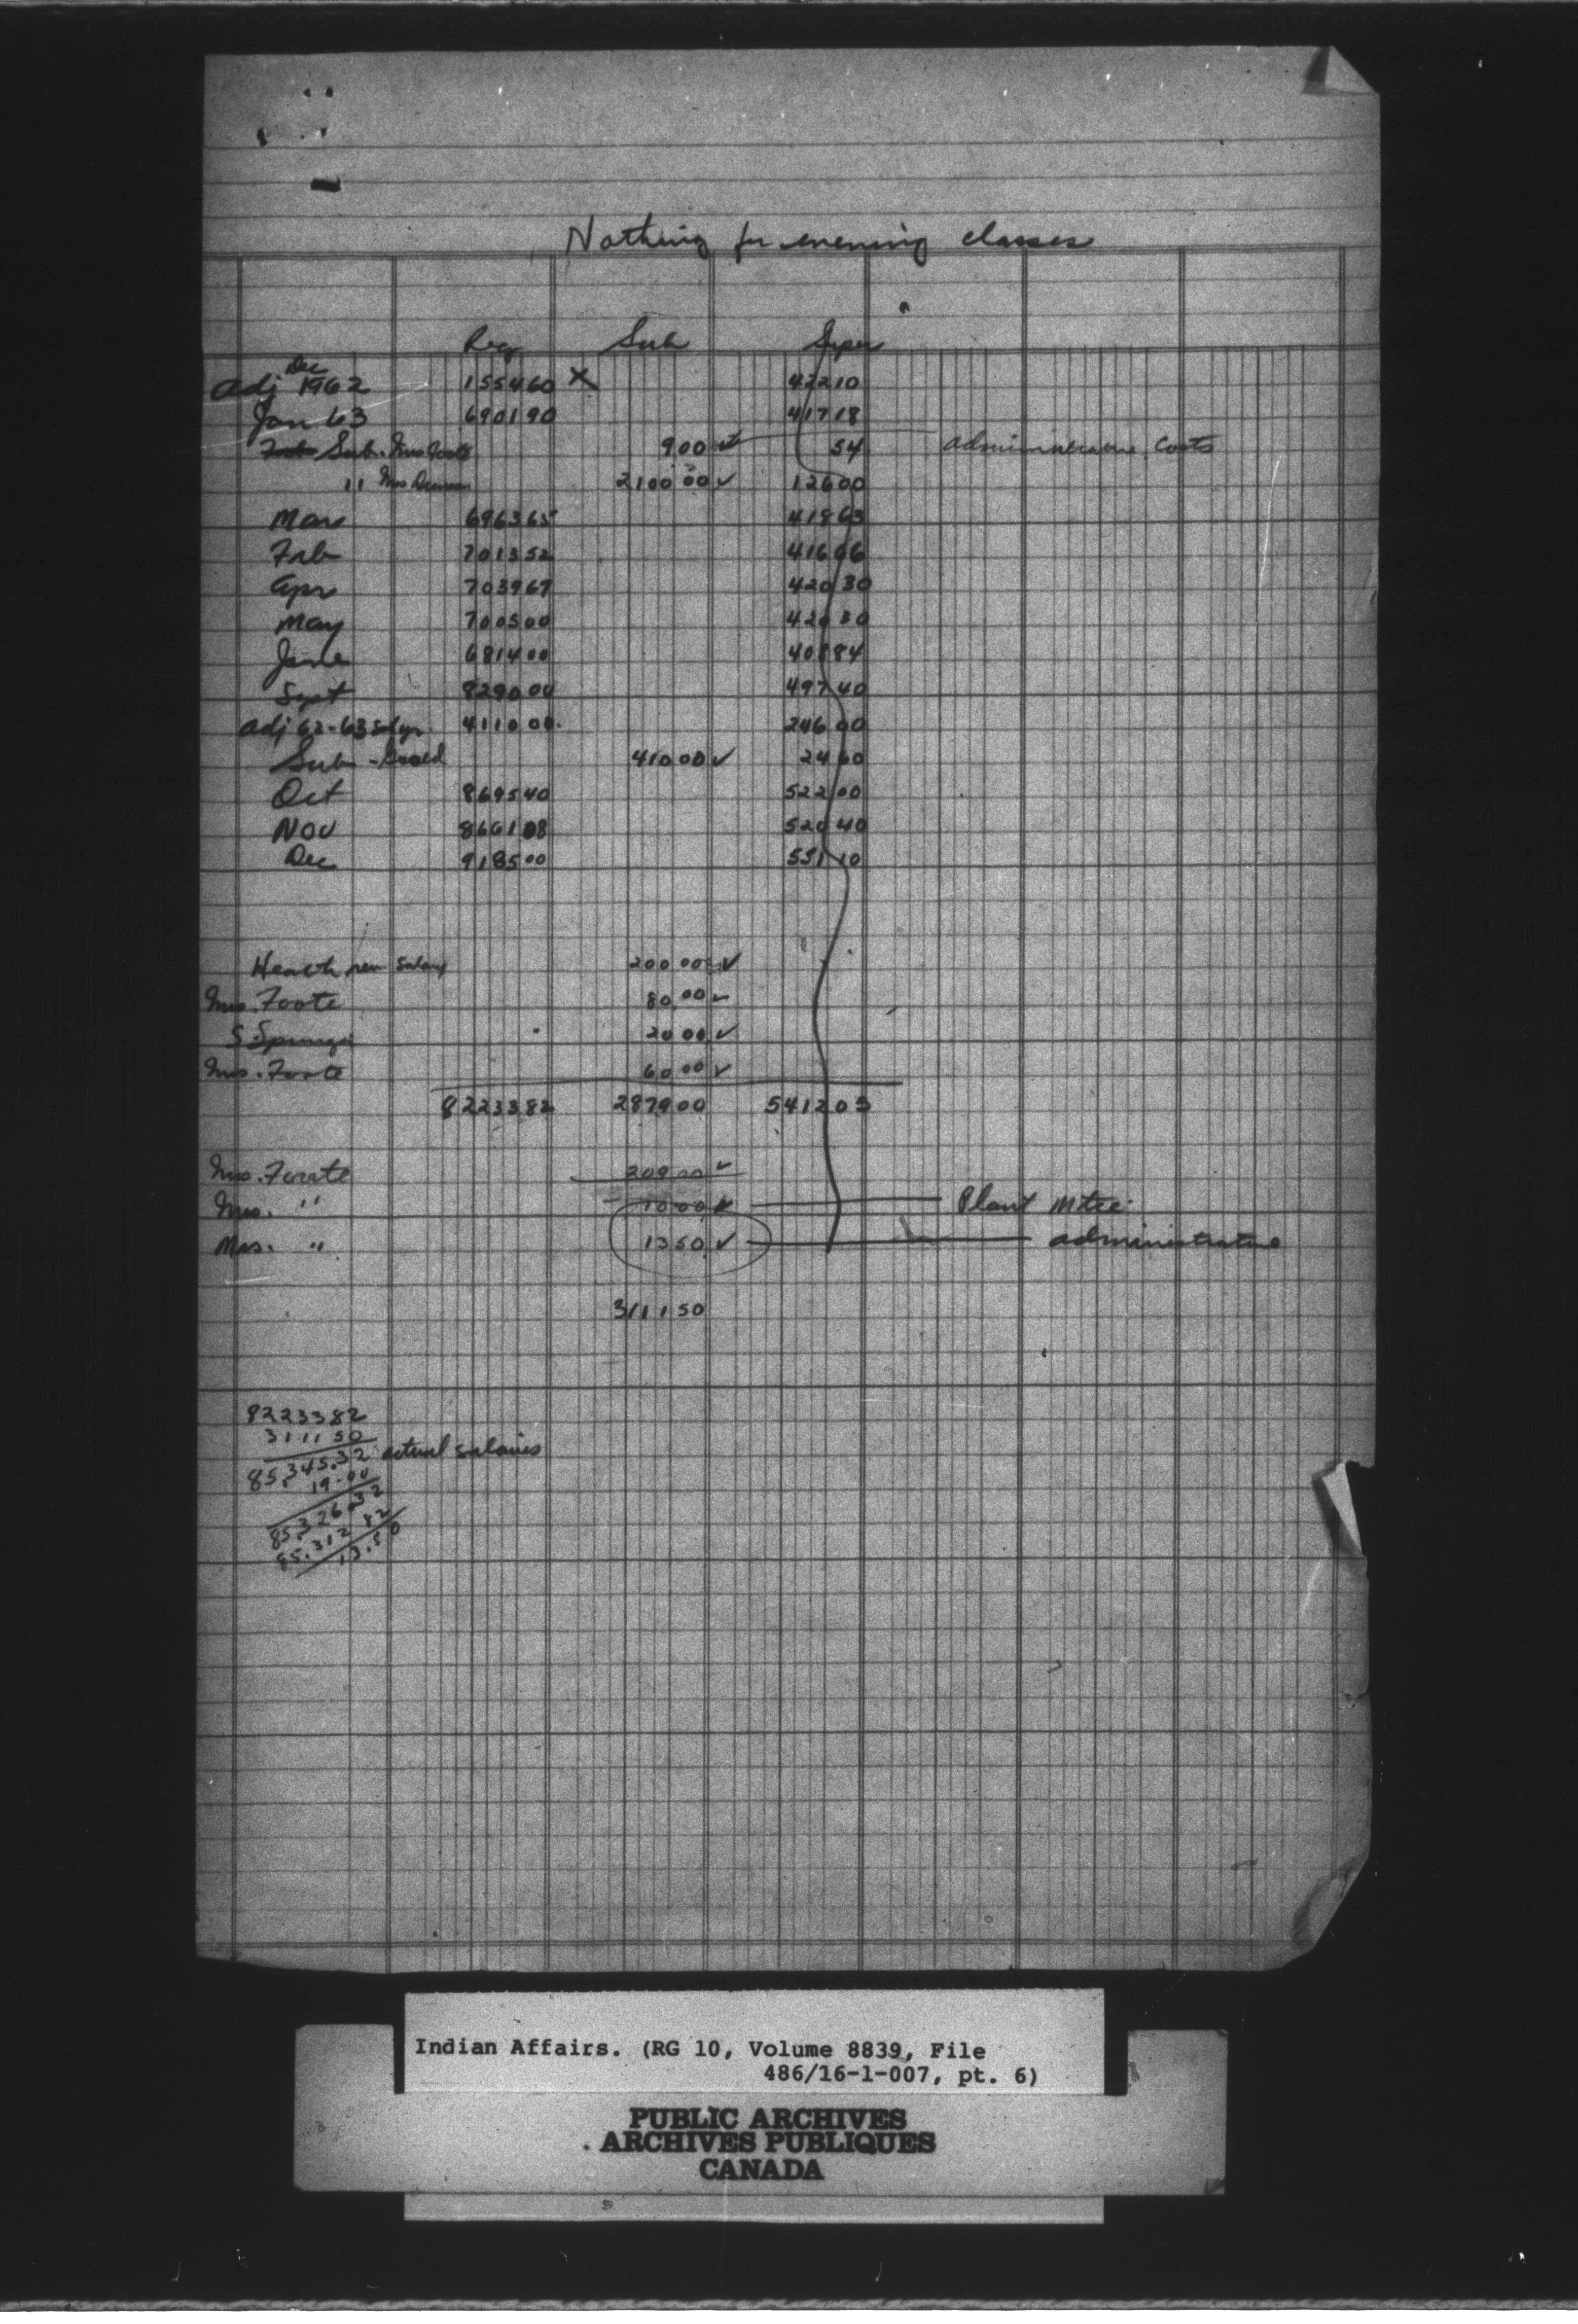 Nothing for evening classes
Reg Sub Super
Dec
Adj 1962 155460 X 42210
Jan 63 690190 41718
Sub. Mrs Foote 900 ✓ 54 administrative costs
" Mrs 210000 ✓ 12600
Mar 696365 41863
Feb 701352 41606
Apr 703967 42030
May 700500 42030
June 681400 40884
Sept 829000 49740
Adj 62-63 411000 24600
Sub - 41000 ✓ 2460
Oct 869540 52200
Nov 866108 52040
Dec 918500 55110
Health salary 20000 ✓
Mrs. Foote 8000 ✓
S. 2000 ✓
Mrs. Foote 6000 ✓
8223382 287900 541205
Mrs. Foote 20900 ✓
Mrs. " 1000 Plant Mtce.
Mrs. " 1350 ✓ administrative
311150
8223382
311150
85,345.32 actual salaries
19.00
85,326.32
85,312.82
13.50
Indian Affairs. (RG 10, Volume 8839, File
486/16-1-007, pt. 6)
PUBLIC ARCHIVES
ARCHIVES PUBLIQUES
CANADA